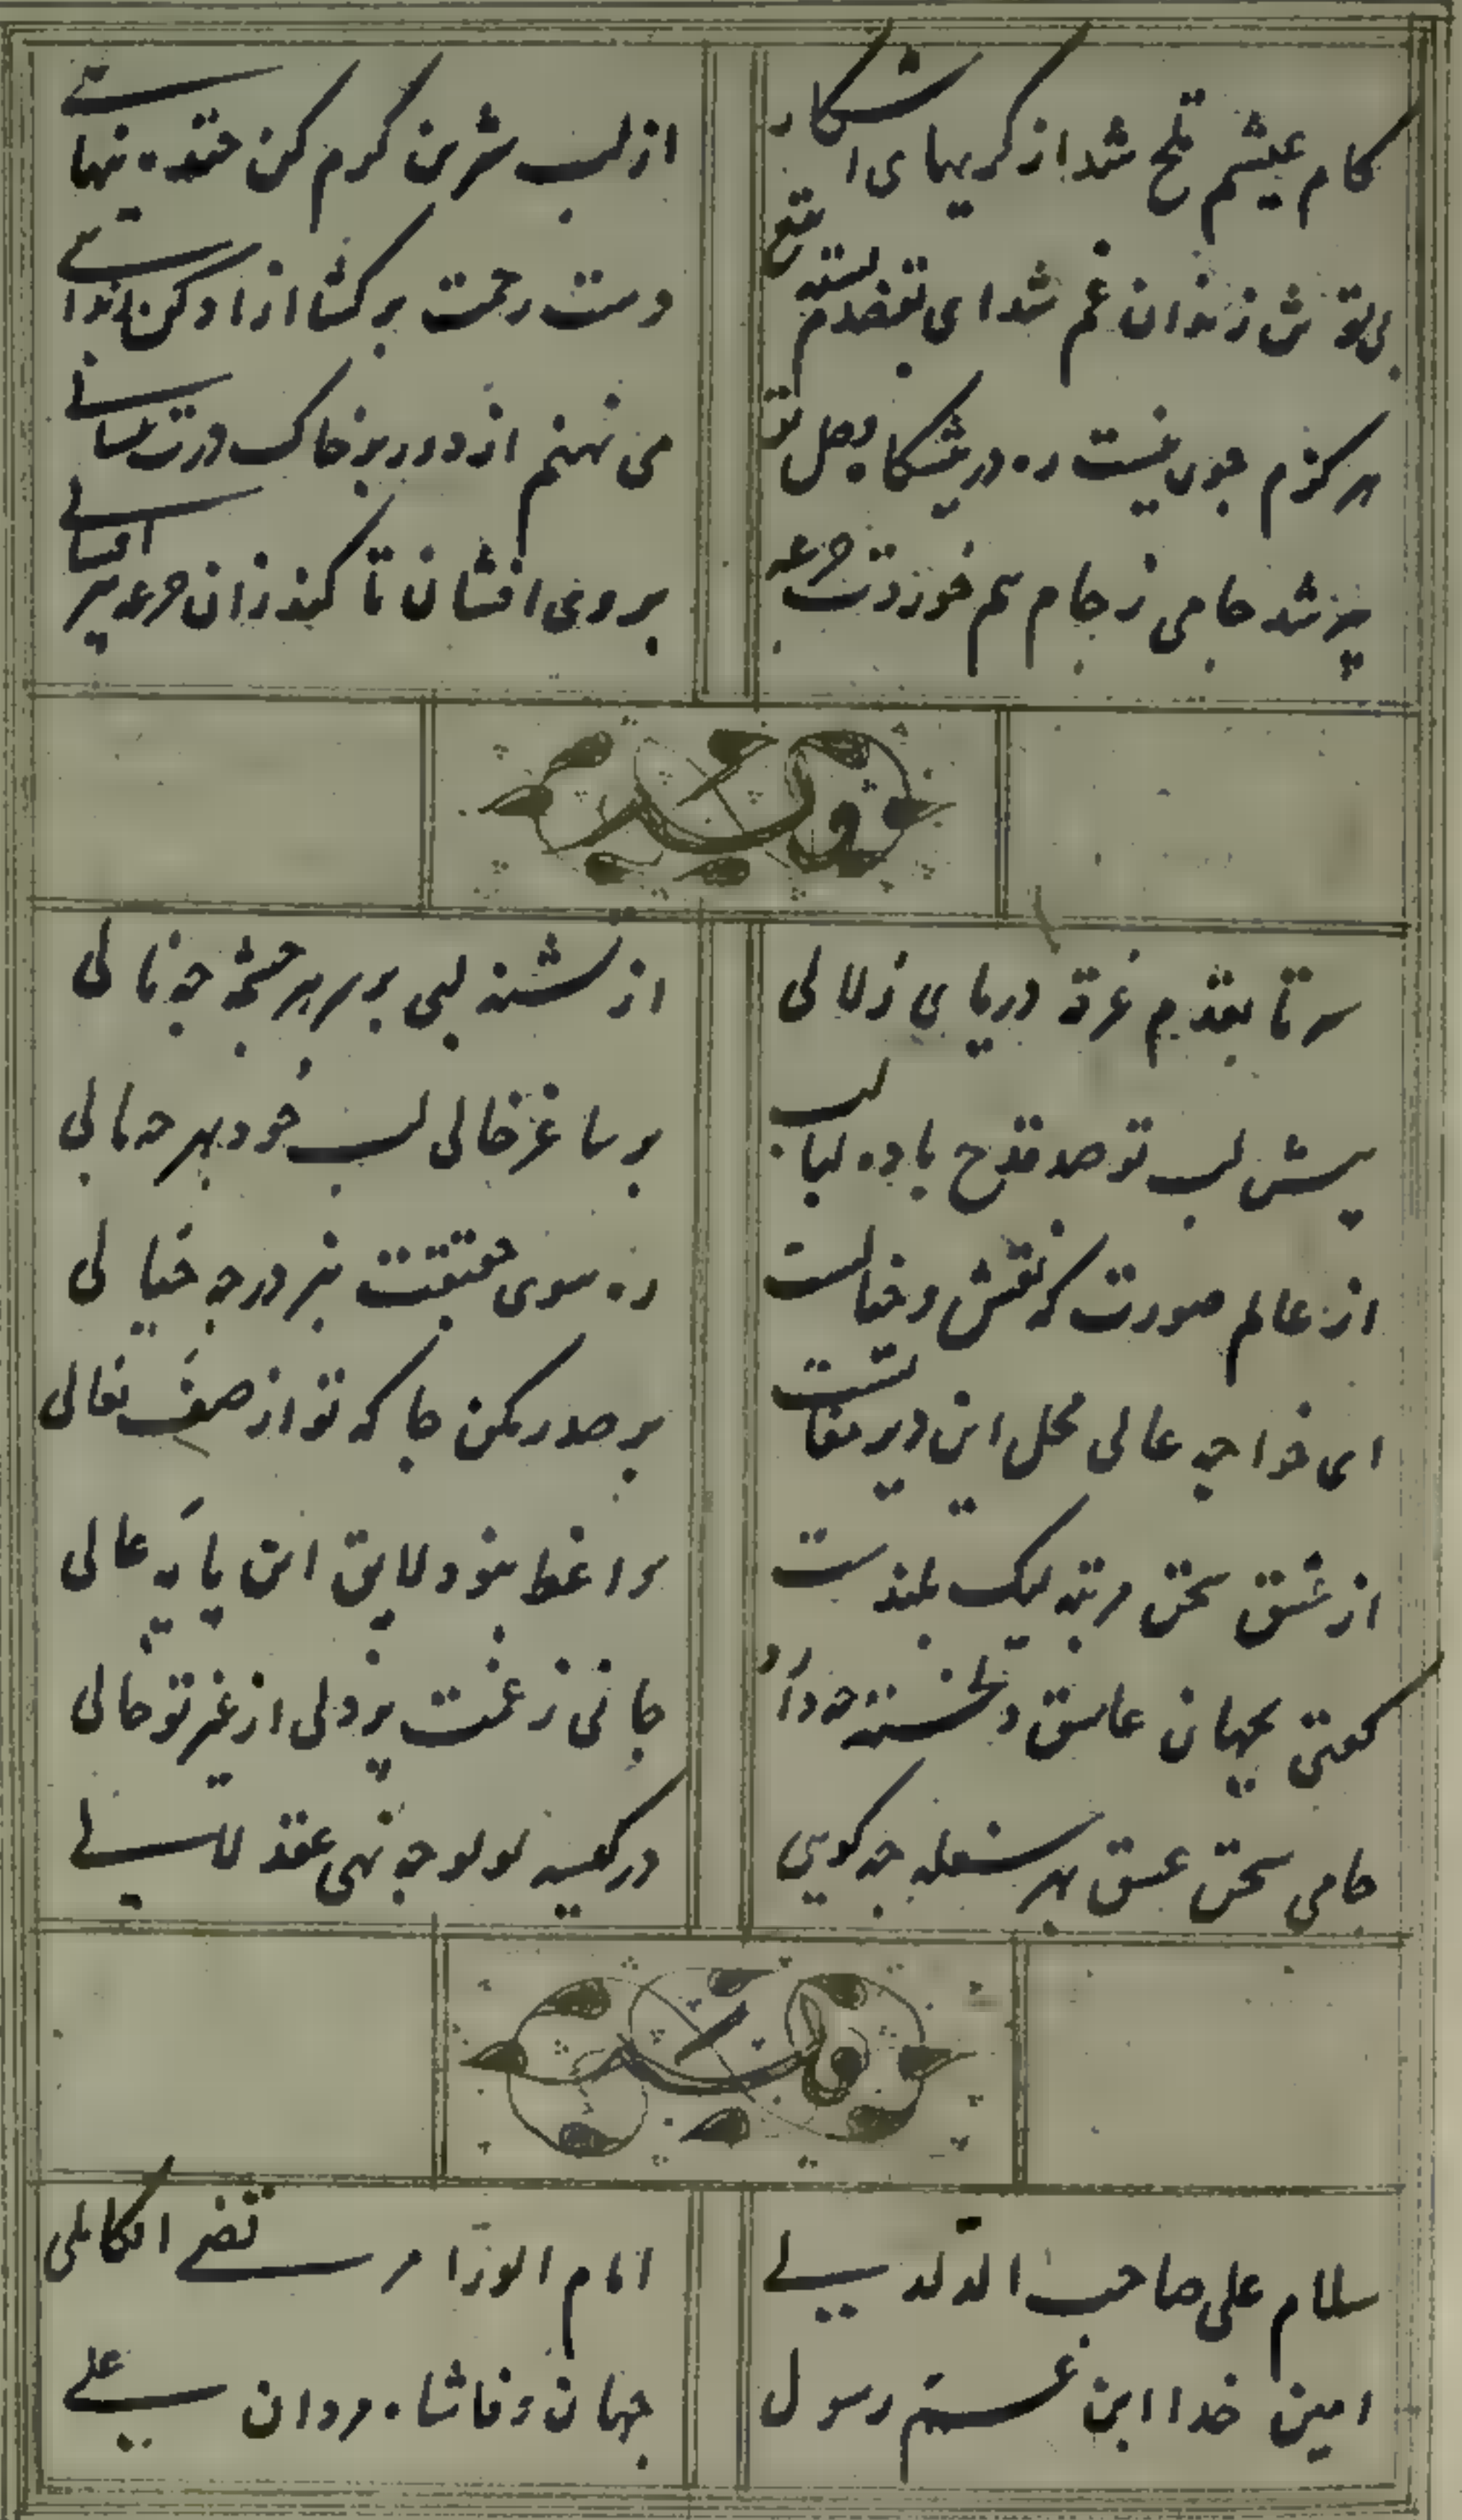 کام عیشم تلخ شد از کریهای اشکار
از لب شرین کرم کن خنده پنهانے
بی تو ش زندان غم شد ای
دست رحمت برکشا ازاد کن
هرکزم چون نیست ره در پیشکاه وصل تو
می نهنم از دور بر خاک درت
پیر شد جامی ز جام غم خورذت جرعه
بر وی افشان تا کند زان جرعه پیر افشانے
وله
سر تا بقدم غرقه دریای زلالی
از تشنه لبی بر سر هر چشمه چه نالی
پیش لب تو صد قدح باده لبالب
بر ساغر خالی لب خود بهر چه مالی
از عالم صورت که نقش و خیالست
ره سوی حقیقت نبر در چه خیالی
ای خواجه عالی محل این دیر مغانست
بر صدر مکن جا که تو از صف نعالی
از عشق سخن مرتبه لیک بلندست
واعظ بنود لایق این پایه عالی
کفتی بجهان عاشق دلخسته چه دارد
جانی ز غمت پر دلی از غیر تو خالی
جامی سخن عشق بهر سفله چه کویی
در کیسه لولو چه نهی عقد لالے
وله
سلام علی صاحب الدلدلے
امام الورا مرتضے الکاملی
امین خدا ابن عم رسول
جهان وفا شاه مردان علے